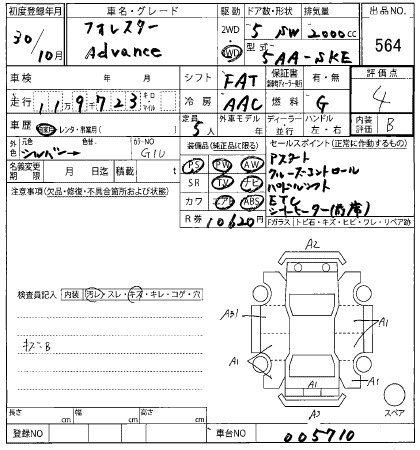 初度登録年月 車名・グレード 駆動 ドア数・形状 排気量 出品NO.
30/10月 フォレスター Advance 2WD 4WD 5 SW 2000cc 564
型式 5AA-SKE
車検 年 月 シフト FAT 保証書 有・無 評価点 4
走行 119723 キロ・マイル 冷房 AAC 燃料 G 内装評価 B
車歴 自家用 レンタ・事業用( ) 定員 5人 外車モデル 年 ディーラー・並行 ハンドル 左・右
色 元色 シルバー 色替 カラーNO G1U 装備品(純正品に限る) セールスポイント(正常に作動するもの)
名義変更期限 月 日迄 積載 t PS PW AW アスタート
注意事項(欠品・修復・不具合箇所および状態) SR TV ナビ クルーズコントロール
カワ エアB ABS パドルシフト
ETC
R券 10620円 シートヒーター(前席)
Fガラス トビ石・キズ・ヒビ・ワレ・リペア跡
検査員記入 内装 汚レ・スレ・キズ・キレ・コゲ・穴
キズ:B
A2
AB1
A1
A1
A1
A1
A3
スペア
長さ cm 幅 cm 高さ cm
登録NO 車台NO 005710